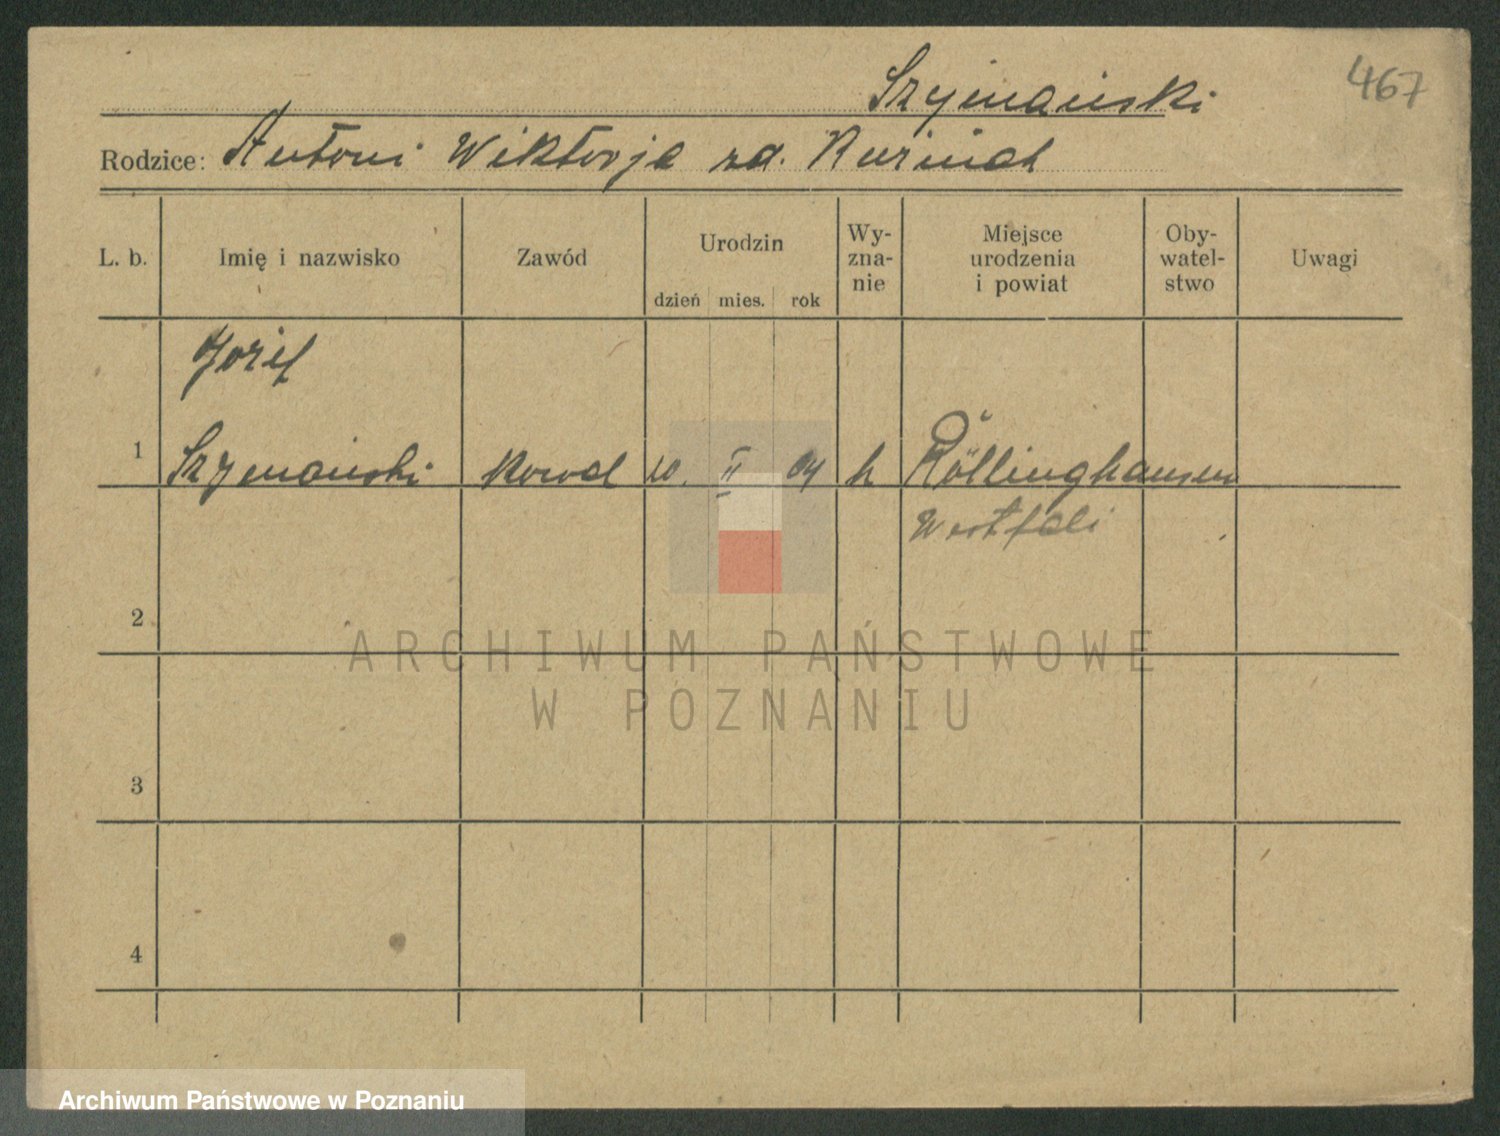 467
Szymański
Rodzice: Antoni Wiktorja zd.
L. b. Imię i nazwisko Zawód Urodzin dzień mies. rok Wy-zna-nie Miejsce urodzenia i powiat Oby-watel-stwo Uwagi
Józef
1 Szymański kowal 10. II 04 k Röllinghausen
Westfali
2
ARCHIWUM PAŃSTWOWE
W POZNANIU
3
4
Archiwum Państwowe w Poznaniu